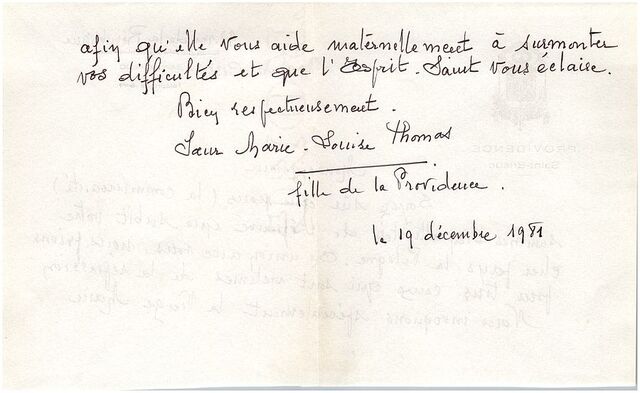 afin qu'elle vous aide maternellement à surmonter
vos difficultés et que l'Esprit-Saint vous éclaise.
Bien respectueusement.
Sœur Marie-Louise Thomas
fille de la Providence.
le 19 décembre 1981